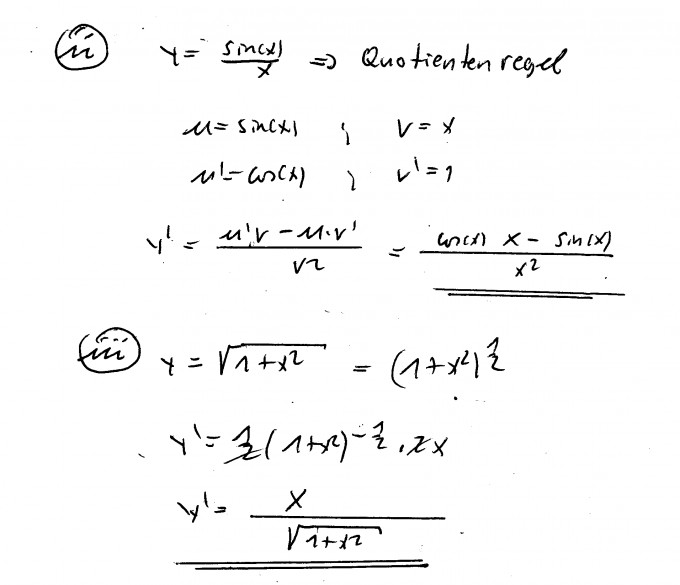 ii y = sin(x)/x => Quotientenregel
u = sin(x) ; v = x
u' = cos(x) ; v' = 1
y' = (u'v - u·v')/v² = (cos(x) x - sin(x))/x²
iii y = √(1+x²) = (1+x²)^(1/2)
y' = 1/2 (1+x²)^(-1/2) · 2x
y' = x/√(1+x²)